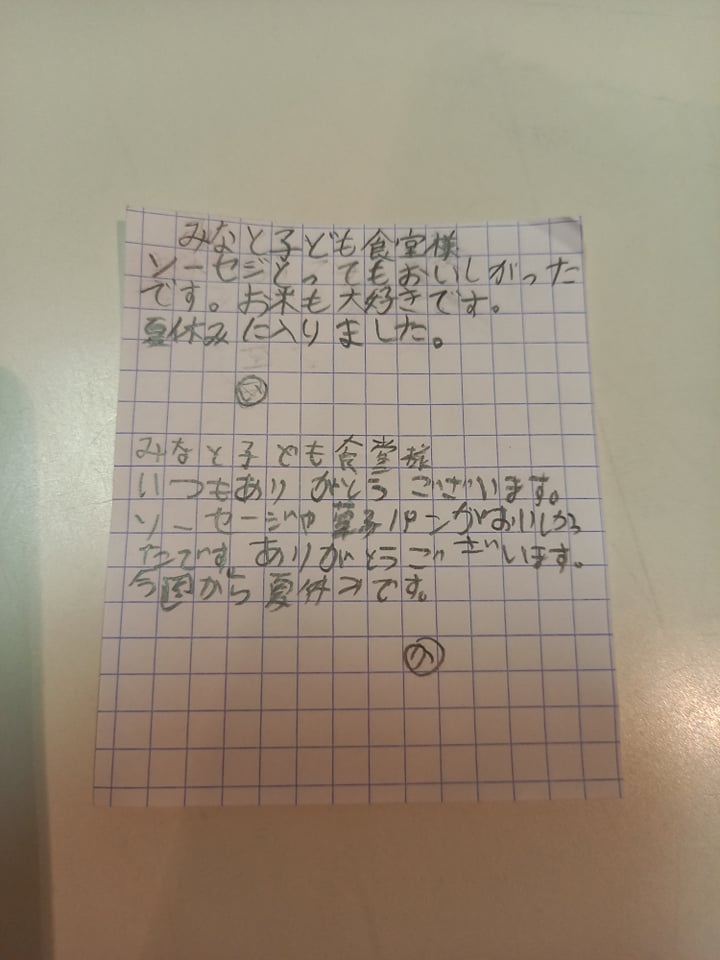 みなと子ども食堂様
ソーセジとってもおいしがった
です。お米も大好きです。
夏休みに入りました。
みなと子ども食堂様
いつもありがとうございます。
ソーセージや菓子パンがおいしかっ
たです。ありがとうございます。
今日から夏休みです。
か